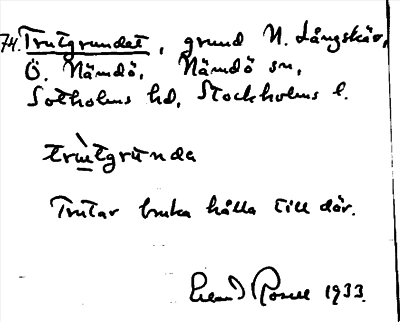 74. Trutgrundet, grund N. Långskär,
Ö. Nämdö, Nämdö sn,
Sotholms hd, Stockholms l.
trùtgrunda
Trutar bruka hålla till där.
1933.